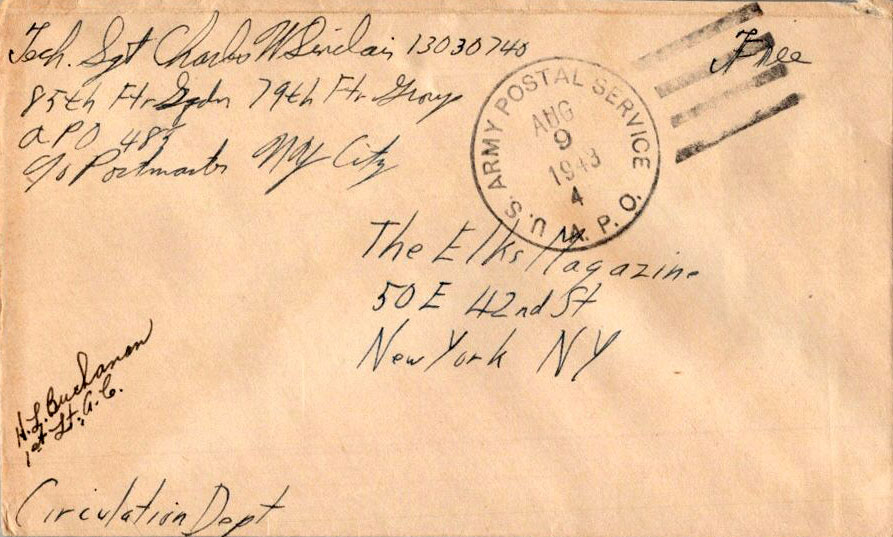 Tech. Sgt Charles W Sinclair 13030740
85th Ftr Sqdn 79th Ftr Group
APO 485
c/o Postmaster NY City
Free
U.S. ARMY POSTAL SERVICE
AUG
9
1943
4
A.P.O.
The Elks Magazine
50 E 42nd St
New York NY
H.L. Buchanan
1st Lt, A.C.
Circulation Dept